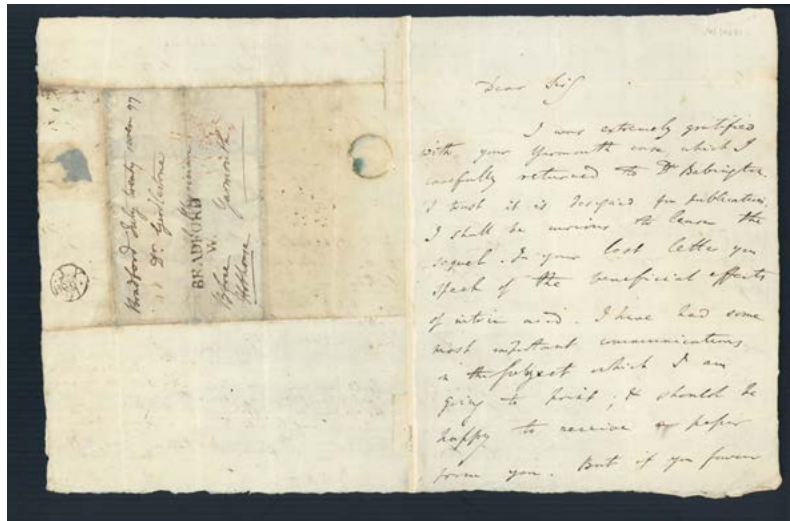 Bradford July twenty seven 97
Dr Girdlestone
Physician
BRADFORD
W.
Yarmouth
Dear Sir
I was extremely gratified
with your Yarmouth case which I
carefully returned to Dr Babington.
I trust it is designed for publication.
I shall be anxious to learn the
sequel. In your last letter you
speak of the beneficial effects
of nitric acid. I have had some
most important communications
on the subject which I am
going to print; & should be
happy to receive a paper
from you. But if you favour